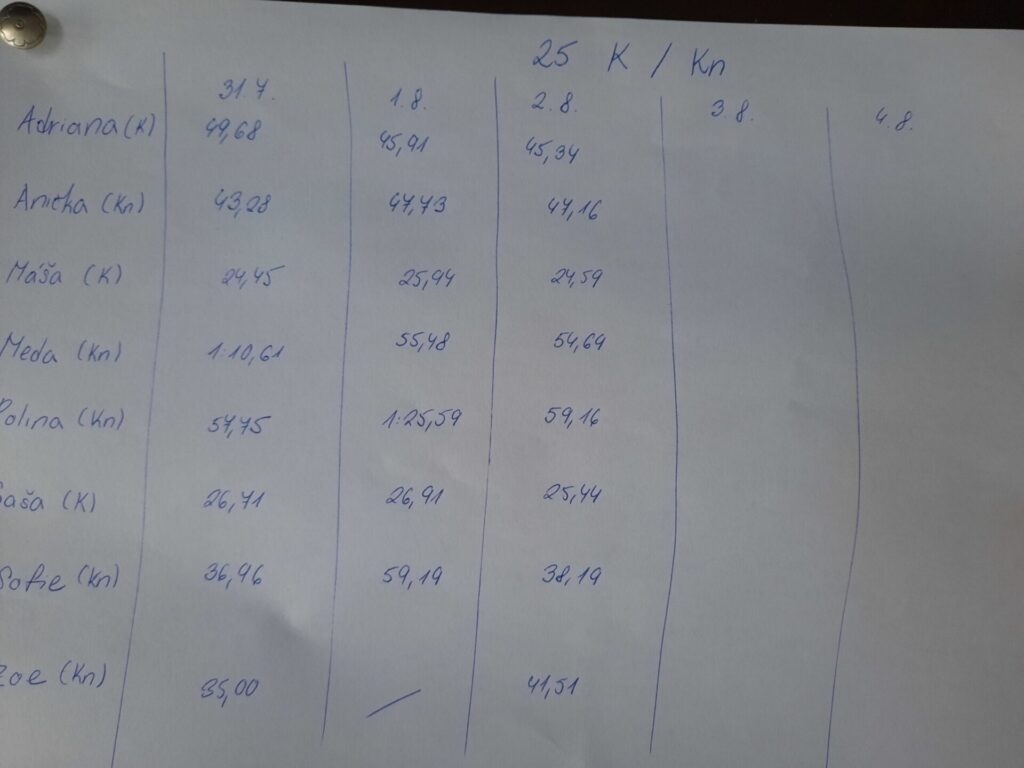 25 K / Kn
31.7. 1.8. 2.8. 3.8. 4.8.
Adriana (K) 49,68 45,91 45,34
Anička (Kn) 43,28 47,73 47,16
Máša (K) 24,45 25,94 24,59
Meda (Kn) 1:10,61 55,48 54,69
Polina (Kn) 57,75 1:25,59 59,16
Saša (K) 26,71 26,91 25,44
Sofie (Kn) 36,96 59,19 38,19
Zoe (Kn) 35,00 / 41,51